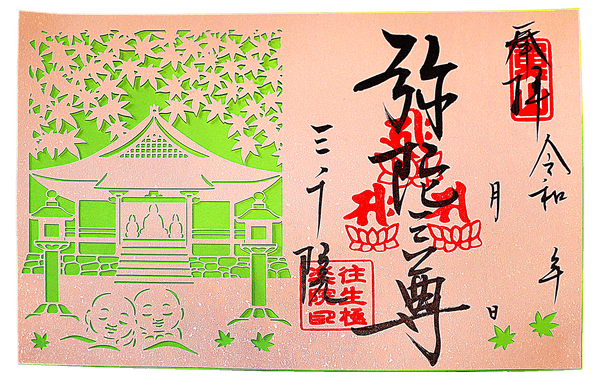 奉拝
令和　年
月　日
弥陀三尊
三千院
往生極
楽院印